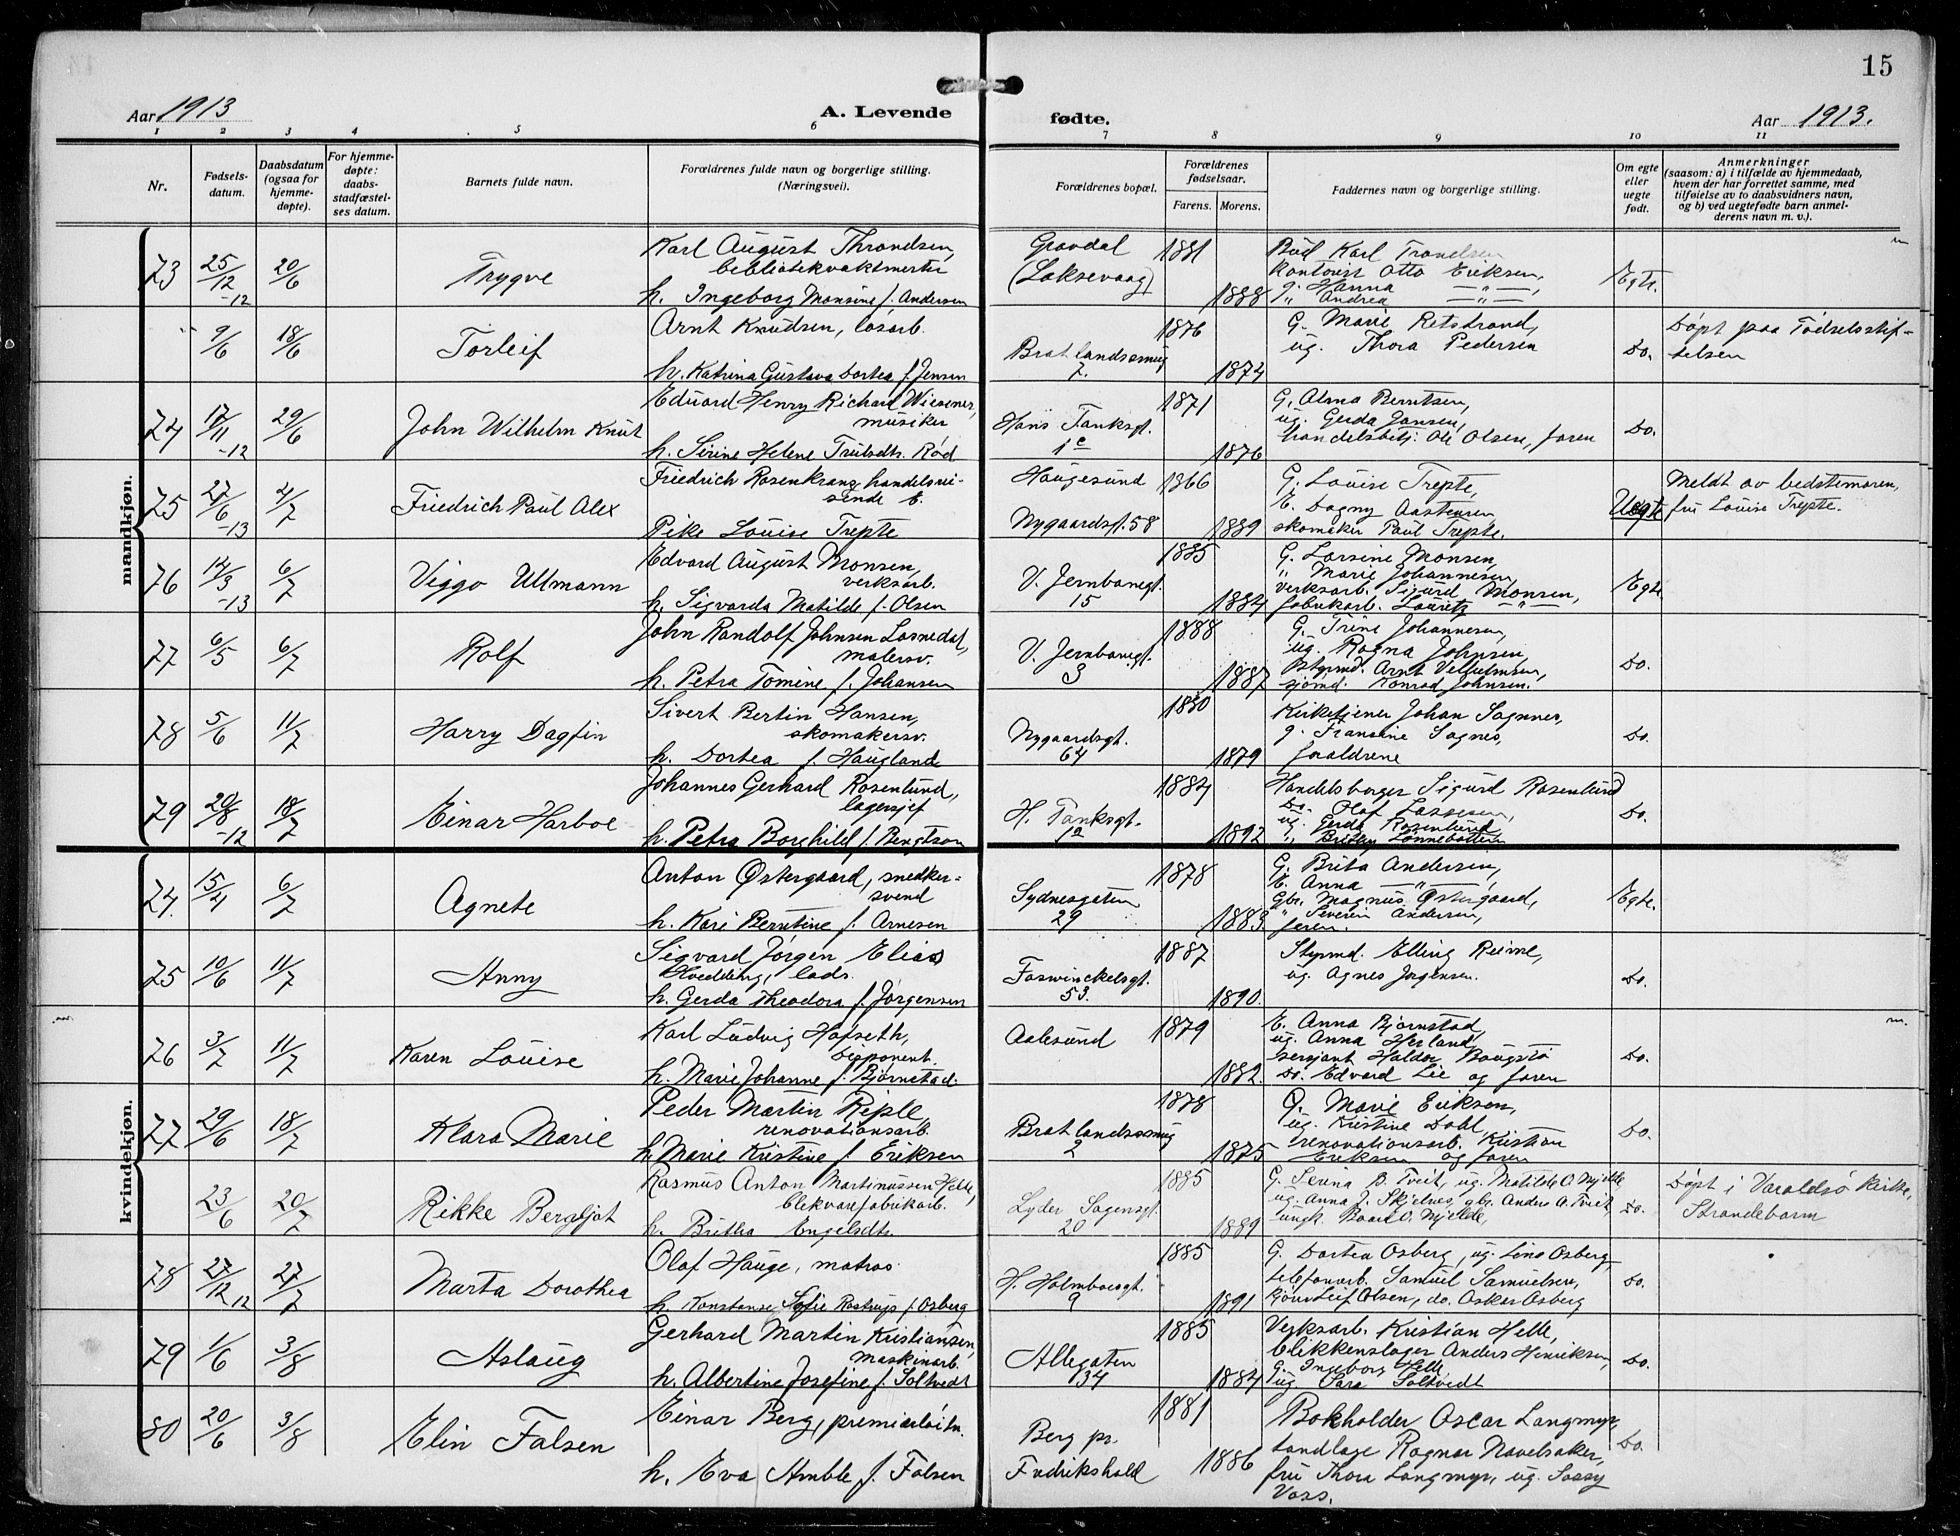 15
Aar 1913
A. Levende
fødte.
Aar 1913.
1 2 3 4 5 6 7 8 9 10 11
Nr.
Fødsels-
datum.
Daabsdatum
(ogsaa for
hjemme-
døpte).
For hjemme-
døpte:
daabs-
stadfæstel-
ses datum.
Barnets fulde navn.
Forældrenes fulde navn og borgerlige stilling.
(Næringsvei).
Forældrenes bopæl.
Forældrenes
fødselsaar.
Farens. Morens.
Faddernes navn og borgerlige stilling.
Om egte
eller
uegte
født.
Anmerkninger
(saasom: a) i tilfælde av hjemmedaab,
hvem der har forrettet samme, med
tilføielse av to daabsvidners navn,
og b) ved uegtefødte barn anmel-
derens navn m. v.).
mandkjøn.
73 25/12 -12 20/6 Trygve
Karl August Throndsen,
bibliotekvaktmester
h. Ingeborg Monsine f. Andersen
Gravdal
(Laksevaag)
1881 1888
Karl Trondsen
kontorist Otto Eriksen,
g. Hanna —"—,
" Andrea —"—
Egte.
" 9/6 18/6 Torleif
Arnt Knudsen, løsarb.
h. Katrina Gustava Dortea f. Jensen
Bratlandssmug
7.
1876 1874
G. Marie Retstrand,
ug. Thora Pedersen
Do.
Døpt paa Fødselsstif-
telsen
74 17/11 -12 29/6 John Wilhelm Knut
Eduard Henry Richard Wiesener,
musiker
h. Sirine Helene Trulsdtr. Rød
Hans Tanksgt.
1c
1871 1876
G. Alma Berntsen,
ug. Gerda Jansen,
handelsbetj. Ole Olsen, faren
Do.
75 27/6 -13 2/7 Friedrich Paul Alex
Friedrich Rosenkranz handelsrei-
sende &
Pike Louise Trepte
Haugesund
Nygaardsgt. 58
1866 1889
G. Louise Trepte,
E. Dagny Aastensen
skomaker Paul Trepte.
Uegte
Meldt av bedstemoren,
fru Louise Trepte.
76 12/3 -13 6/7 Viggo Ullmann
Edvard August Monsen,
verksarb.
h. Sigvarda Matilde f. Olsen
V. Jernbanegt.
15
1885 1884
G. Larsine Monsen,
" Marie Johannesen,
verksarb. Sigurd Monsen,
fabrikarb. Lauritz —"—
Egte.
77 6/5 6/7 Rolf
John Randolf Johnsen Losnedal,
malersv.
h. Petra Tomine f. Johansen
V. Jernbanegt.
3
1888 1887
G. Trine Johannesen,
ug. Ragna Johnsen,
styrmd. Arnt Velhelmsen,
sjømd. Konrad Johnsen.
Do.
78 5/6 11/7 Harry Dagfin
Sivert Bertin Hansen,
skomakersv.
h. Dortea f. Haugland
Nygaardsgt.
64
1880 1879
Kirketjener Johan Sognnes,
g. Fransine Sognes,
foraldrene
Do.
79 20/8 -12 18/7 Einar Harboe
Johannes Gerhard Rosenlund,
lagersjef
h. Petra Borghild f. Bengtson
H. Tanksgt.
1a
1884 1892
Handelsborger Sigurd Rosenlund
Do. Olaf Lassesen,
ug. Gerda Rosenlund
Do.
kvindekjøn.
74. 15/4 6/7 Agnete
Anton Østergaard, snedker-
svend
h. Kari Berntine f. Arnesen
Sydnesgaten
29
1878 1883.
G. Brita Andersen,
E. Anna —"—,
Gbr. Magnus Østergaard,
" Severin Andersen,
faren.
Egte.
75 10/6 11/7 Anny
Sigvard Jørgen Elias
Hvedding, lods.
h. Gerda Theodora f. Jørgensen
Foswinckelsgt.
53.
1887 1890.
Styrmd. Elling Reime,
ug. Agnes Jørgensen.
Do.
76 3/7 11/7 Karen Louise
Karl Ludvig Hofseth,
disponent.
h. Marie Johanne f. Bjørnstad.
Aalesund
1879 1882.
E. Anna Bjørnstad,
ug. Anna Herland,
sersjant Haldor Baugstø
Do. Edvard Lie og faren
Do.
77 29/6 18/7 Klara Marie
Peder Martin Riple,
renovationsarb.
h. Marie Kristine f. Eriksen
Bratlandssmug
2
1878 1875
G. Marie Eriksen,
ug. Kristine Dahl,
renovationsarb. Kristian
Eriksen og faren
Do.
23/6 20/7 Rikke Bergljot
Rasmus Anton Martinussen Helle,
blekvarefabrikarb.
h. Britha Engelsdtr.
Lyder Sagensgt.
20
1885 1889
G. Serina B. Tveit, ug. Matilde O. Mjelde
ug. Anna J. Skjelnes, gbr. Anders A. Tveit,
ungk. Baard O. Mjelde,
Do.
Døpt i Varaldsø kirke,
Strandebarm
78 27/12 12 27/7 Marta Dorothea
Olaf Hauge, matros
h. Konstanse Sofie Rostrup f. Osberg
H. Holmboesgt.
9
1885 1891
G. Dortea Osberg, ug. Lina Osberg,
telefonarb. Samuel Samuelsen,
Leif Olsen, do. Oskar Osberg
Do.
79 1/6 3/8 Aslaug
Gerhard Martin Kristiansen,
maskinarb.
h. Albertine Josefine f. Soltvedt
Allegaten
34
1885 1884
Verksarb. Kristian Helle,
blikkenslager Anders Henriksen,
G. Ingeborg Helle
ug. Sara Soltvedt
Do.
80 20/6 3/8 Elin Falsen
Einar Berg, premierløitn.
h. Eva Amble f. Falsen
Berg pr.
Fredrikshald
1881 1886
Bokholder Oscar Langmyr,
tandlæge Ragnar Navelsaker,
fru Thora Langmyr, ug. Sassy
Voss.
Do.